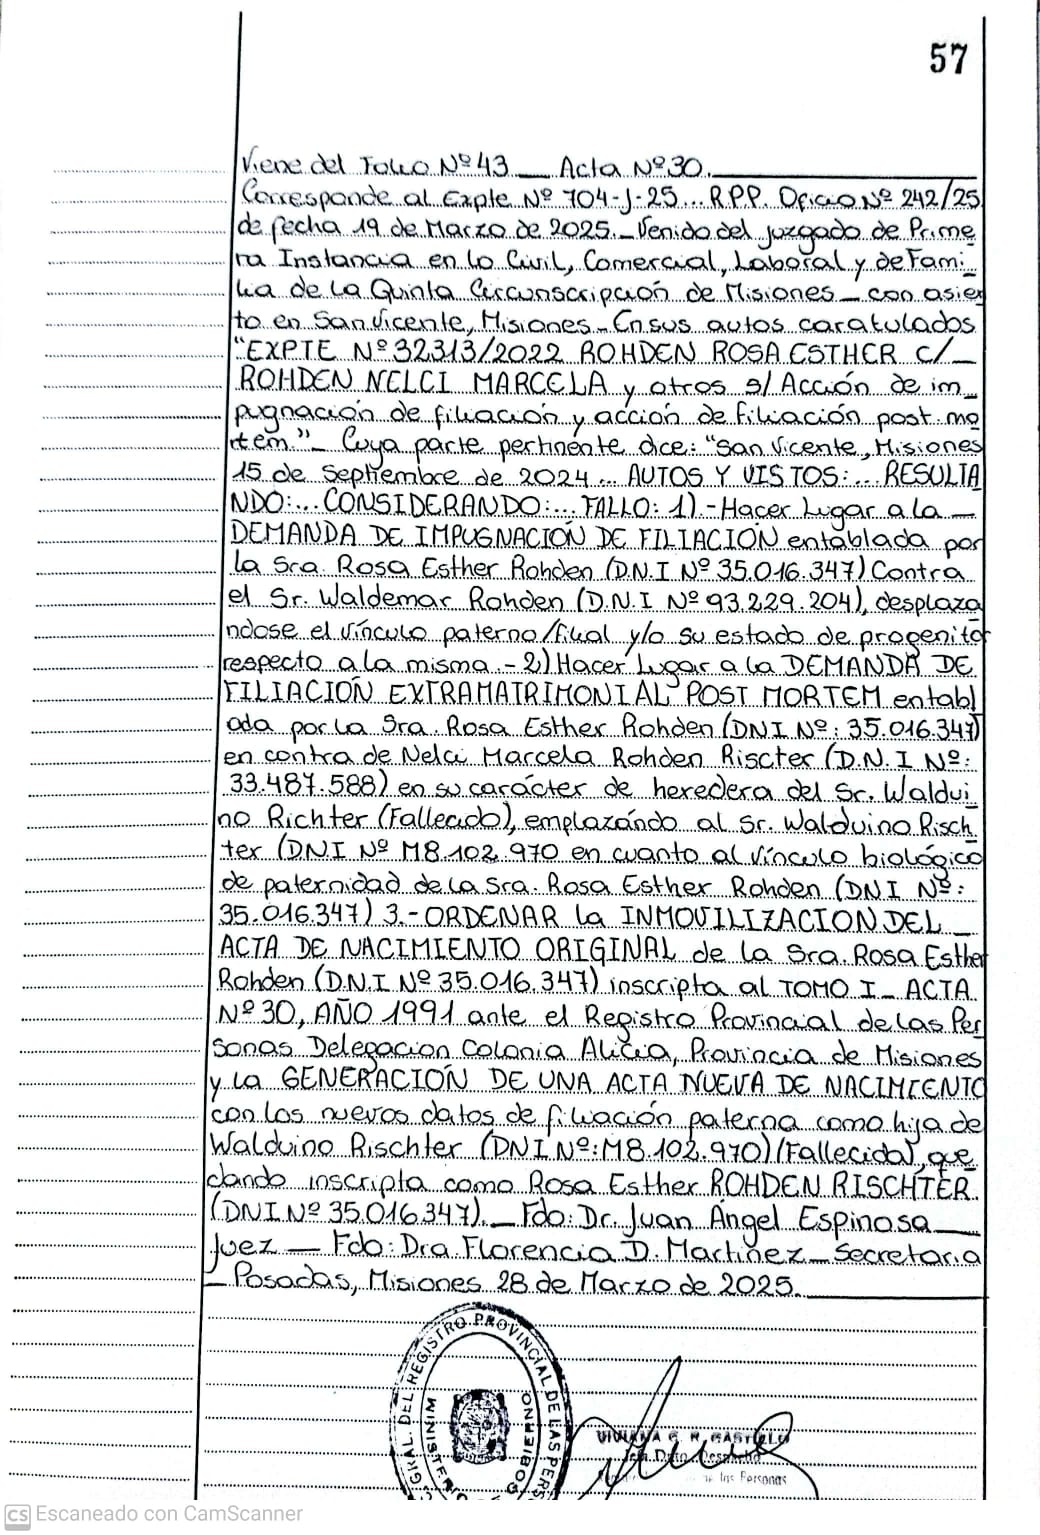 57
Viene del Folio Nº 43 __ Acta Nº 30.
Corresponde al Expte Nº 704-J-25... R.P.P. Oficio Nº 242/25
de fecha 19 de Marzo de 2025._ Venido del juzgado de Prime
ra Instancia en lo Civil, Comercial, Laboral y de Fami_
lia de La Quinta Circunscripción de Misiones _ con asien
to en San Vicente, Misiones _ En sus autos caratulados
"EXPTE Nº 32313/2022 ROHDEN ROSA ESTHER c/_
ROHDEN NELCI MARCELA y otros s/ Acción de im_
pugnación de filiación y acción de filiación post. mo
rtem."_ Cuya parte pertinente dice: "San Vicente, Misiones
15 de Septiembre de 2024... AUTOS Y VISTOS:... RESULTA
NDO:... CONSIDERANDO:... FALLO: 1).- Hacer Lugar a la _
DEMANDA DE IMPUGNACIÓN DE FILIACIÓN entablada por
la Sra. Rosa Esther Rohden (D.N.I Nº 35.016.347) Contra
el Sr. Waldemar Rohden (D.N.I Nº 93.229.204), desplaza
ndose el vínculo paterno/filial y/o su estado de progenitor
respecto a la misma.- 2) Hacer Lugar a la DEMANDA DE
FILIACIÓN EXTRAMATRIMONIAL POST MORTEM entabl
ada por la Sra. Rosa Esther Rohden (DNI Nº: 35.016.347)
en contra de Nelci Marcela Rohden Riscter (D.N.I Nº:
33.487.588) en su carácter de heredera del Sr. Waldui_
no Richter (Fallecido), emplazándo al Sr. Walduino Risch_
ter (DNI Nº M8.102.970 en cuanto al vínculo biológico
de paternidad de la Sra. Rosa Esther Rohden (DNI Nº:
35.016.347) 3.- ORDENAR la INMOVILIZACION DEL _
ACTA DE NACIMIENTO ORIGINAL de la Sra. Rosa Esther
Rohden (D.N.I Nº 35.016.347) inscripta al TOMO I _ ACTA
Nº 30, AÑO 1991 ante el Registro Provincial de las Per
sonas Delegacion Colonia Alicia, Provincia de Misiones
y la GENERACIÓN DE UNA ACTA NUEVA DE NACIMIENTO
con los nuevos datos de filiación paterna como hija de
Walduino Rischter (DNI Nº: M8.102.970) (Fallecido), que
dando inscripta como Rosa Esther ROHDEN RISCHTER.
(DNI Nº 35.016.347)._ Fdo: Dr. Juan Ángel Espinosa __
Juez _ Fdo: Dra. Florencia D. Martinez _ Secretaria
_ Posadas, Misiones 28 de Marzo de 2025.
GRAL. DEL REGISTRO PROVINCIAL DE LAS PERS
MINISTERIO DE GOBIERNO
VIVIANA G. R. CASTELO
Despacho
de las Personas
CS Escaneado con CamScanner